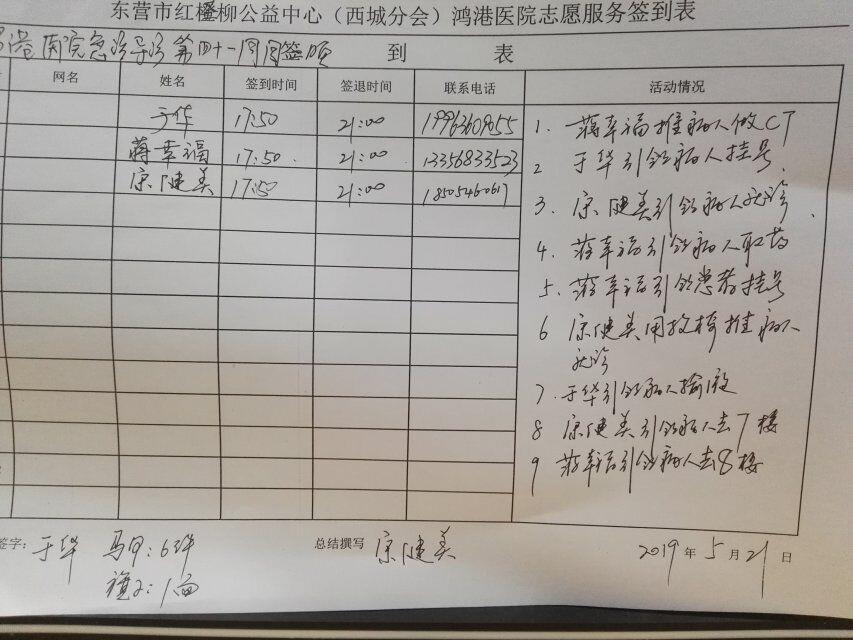 东营市红柽柳公益中心（西城分会）鸿港医院志愿服务签到表
港医院急诊导诊第四十一周周签 到 表
网名 姓名 签到时间 签退时间 联系电话 活动情况
于华 17:50 21:00 19963609655
蒋幸福 17:50 21:00 13356833523
宗健美 17:50 21:00 18505460617
1. 蒋幸福推病人做CT
2 于华引领病人挂号
3. 宗健美引领病人就诊
4. 蒋幸福引领病人取药
5. 蒋幸福引领患者挂号
6 宗健美用拉椅推病人
就诊
7. 于华引领病人输液
8 宗健美引领病人去7楼
9 蒋幸福引领病人去8楼
签字: 于华 马甲:6件 总结撰写 宗健美 2019年5月21日
旗子:1面